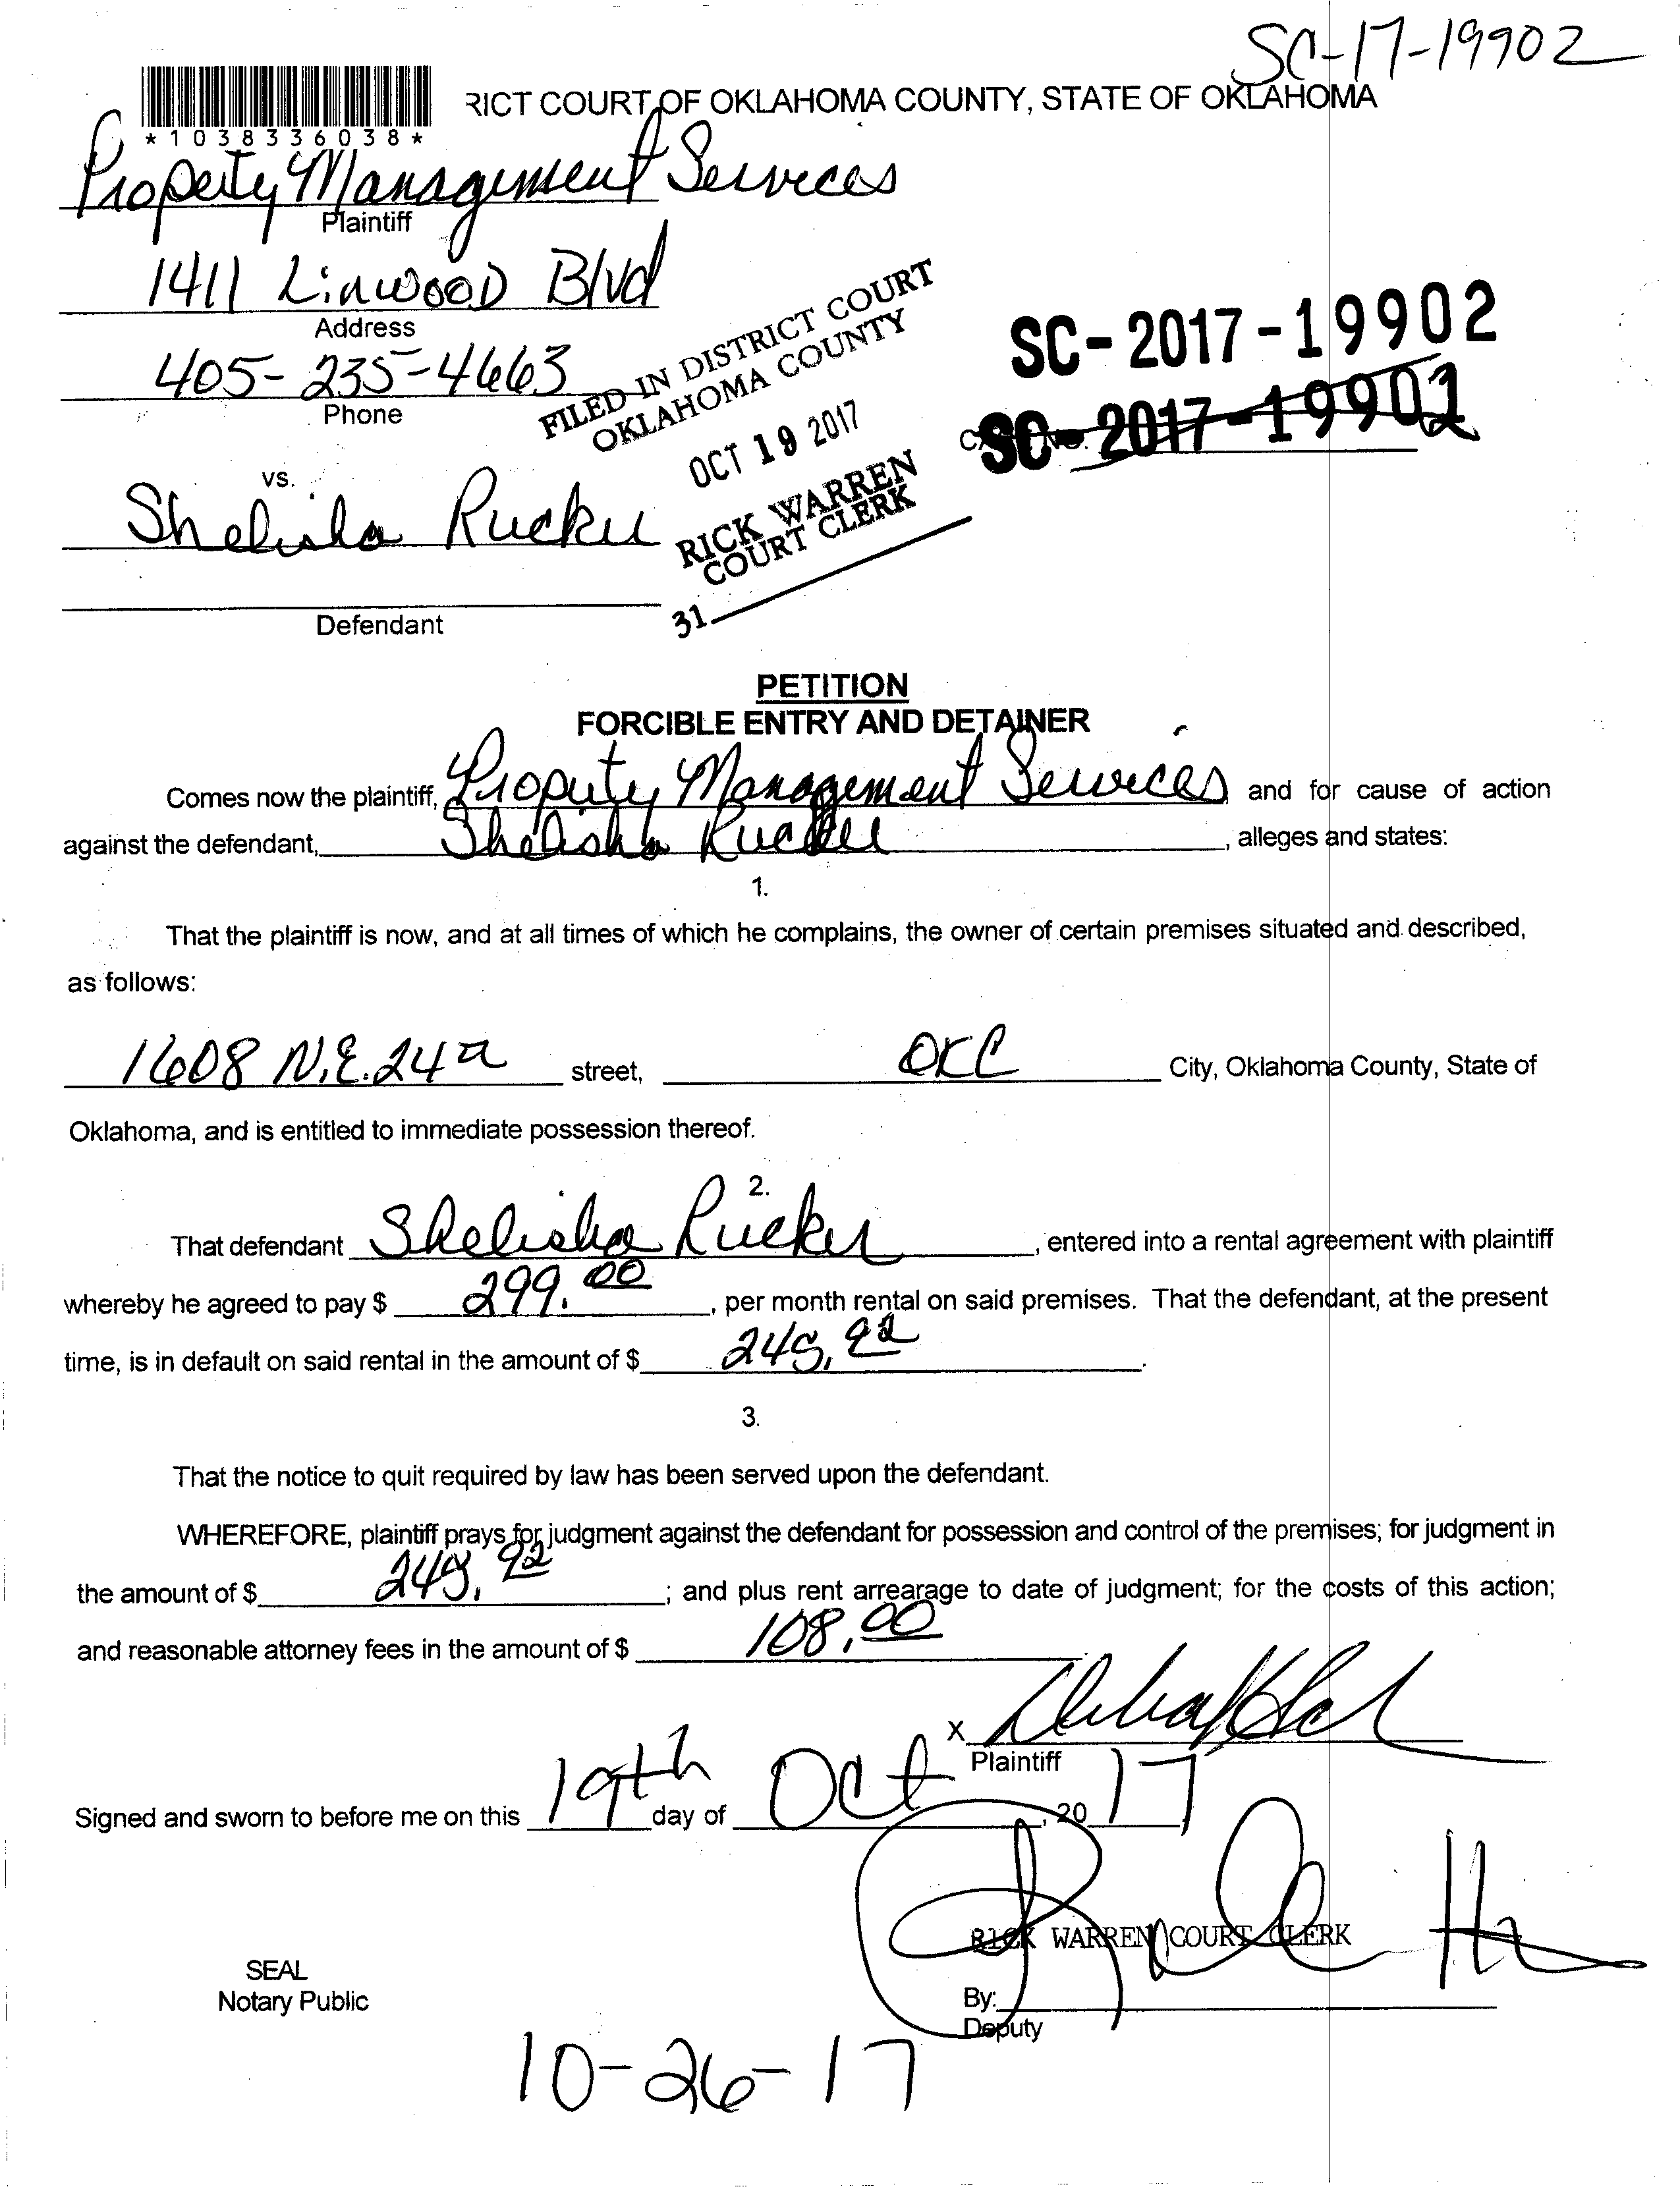 SC-17-19902
RICT COURT OF OKLAHOMA COUNTY, STATE OF OKLAHOMA
*1038336038*
Property Management Services
Plaintiff
1411 Linwood Blvd
Address
405-235-4663
Phone
FILED IN DISTRICT COURT
OKLAHOMA COUNTY
OCT 19 2017
RICK WARREN
COURT CLERK
31
SC-2017-19902
SC-2017-19901
vs.
Shelisha Rucker
Defendant
PETITION
FORCIBLE ENTRY AND DETAINER
Comes now the plaintiff, Property Management Services and for cause of action
against the defendant, Shelisha Rucker, alleges and states:
1.
That the plaintiff is now, and at all times of which he complains, the owner of certain premises situated and described,
as follows:
1608 N.E. 24 street, OKC City, Oklahoma County, State of
Oklahoma, and is entitled to immediate possession thereof.
2.
That defendant Shelisha Rucker, entered into a rental agreement with plaintiff
whereby he agreed to pay $ 299.00, per month rental on said premises. That the defendant, at the present
time, is in default on said rental in the amount of $
3.
That the notice to quit required by law has been served upon the defendant.
WHEREFORE, plaintiff prays for judgment against the defendant for possession and control of the premises; for judgment in
the amount of $ ; and plus rent arrearage to date of judgment; for the costs of this action;
and reasonable attorney fees in the amount of $ 108.00.
X
Plaintiff
Signed and sworn to before me on this 19th day of Oct, 20 17
RICK WARREN COURT CLERK
SEAL
Notary Public
By:
Deputy
10-26-17